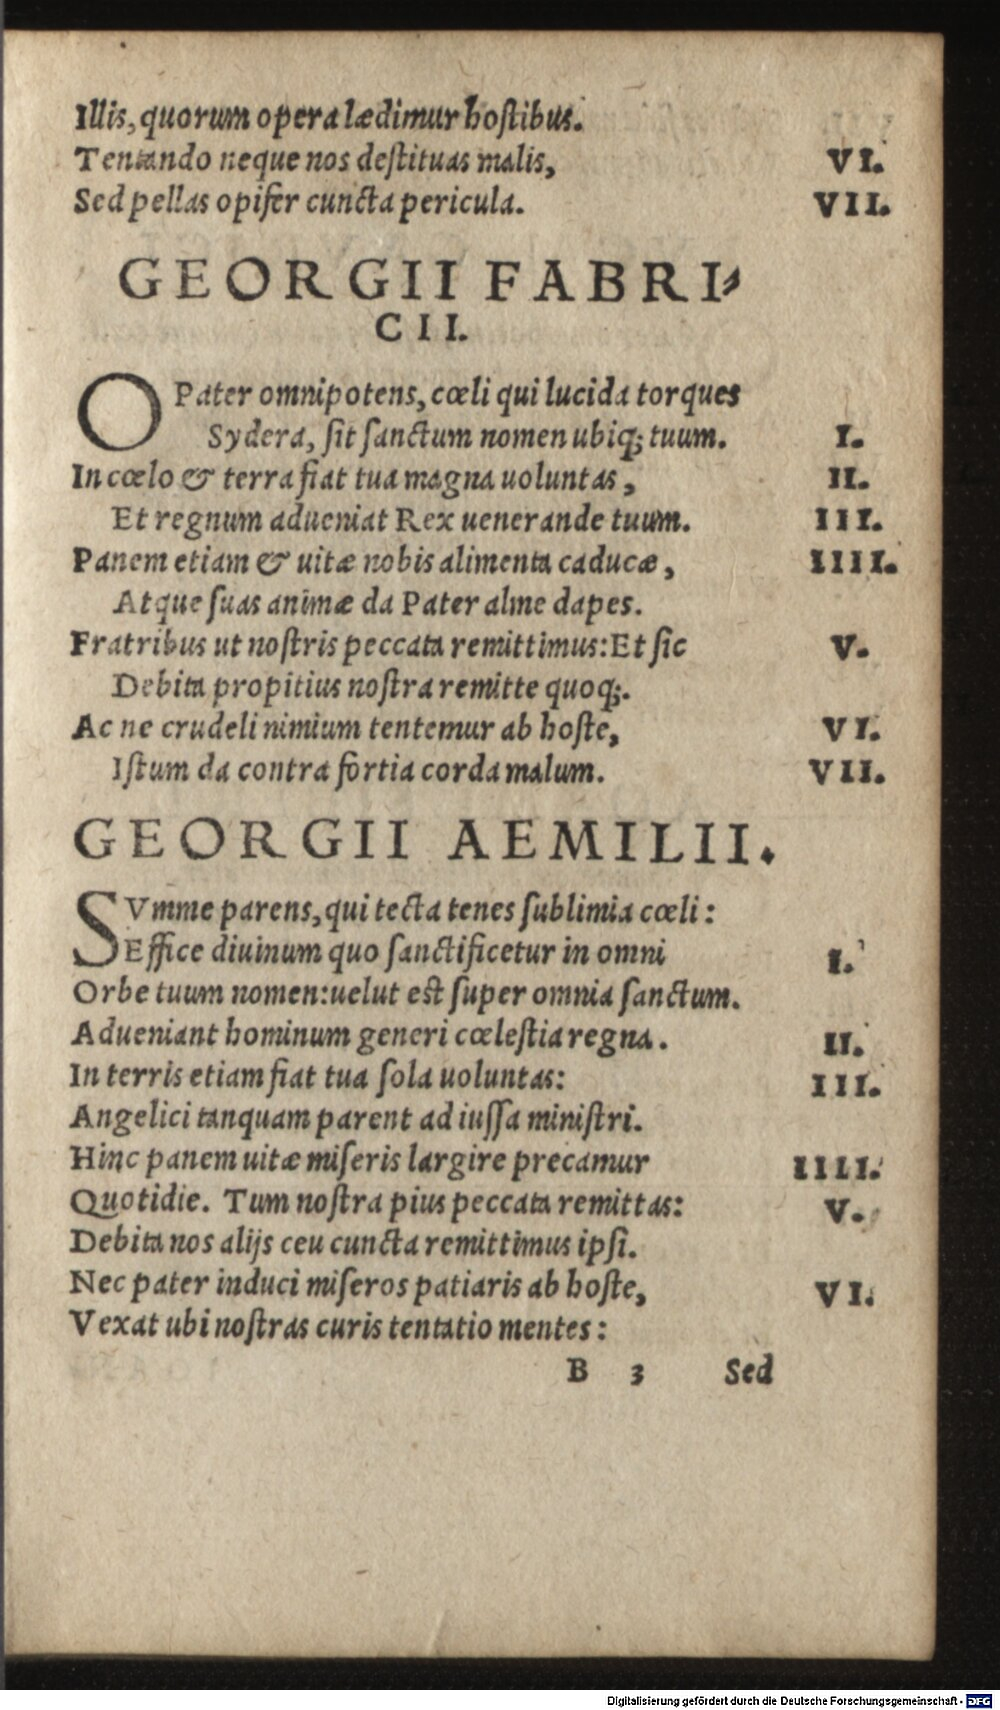 Illis, quorum opera lædimur hoſtibus.
Tentando neque nos deſtituas malis, VI.
Sed pellas opifer cuncta pericula. VII.
GEORGII FABRI-
CII.
O Pater omnipotens, cœli qui lucida torques
Sydera, ſit ſanctum nomen ubiq; tuum. I.
In cœlo & terra fiat tua magna uoluntas, II.
Et regnum adueniat Rex uenerande tuum. III.
Panem etiam & uitæ nobis alimenta caducæ, IIII.
Atque ſuas animæ da Pater alme dapes.
Fratribus ut noſtris peccata remittimus: Et ſic V.
Debita propitius noſtra remitte quoq;.
Ac ne crudeli nimium tentemur ab hoſte, VI.
Iſtum da contra fortia corda malum. VII.
GEORGII AEMILII.
SVmme parens, qui tecta tenes ſublimia cœli:
Effice diuinum quo ſanctificetur in omni I.
Orbe tuum nomen: uelut eſt ſuper omnia ſanctum.
Adueniant hominum generi cœleſtia regna. II.
In terris etiam fiat tua ſola uoluntas: III.
Angelici tanquam parent ad iuſſa miniſtri.
Hinc panem uitæ miſeris largire precamur IIII.
Quotidie. Tum noſtra pius peccata remittas: V.
Debita nos alijs ceu cuncta remittimus ipſi.
Nec pater induci miſeros patiaris ab hoſte, VI.
Vexat ubi noſtras curis tentatio mentes:
B 3 Sed
Digitalisierung gefördert durch die Deutsche Forschungsgemeinschaft - DFG